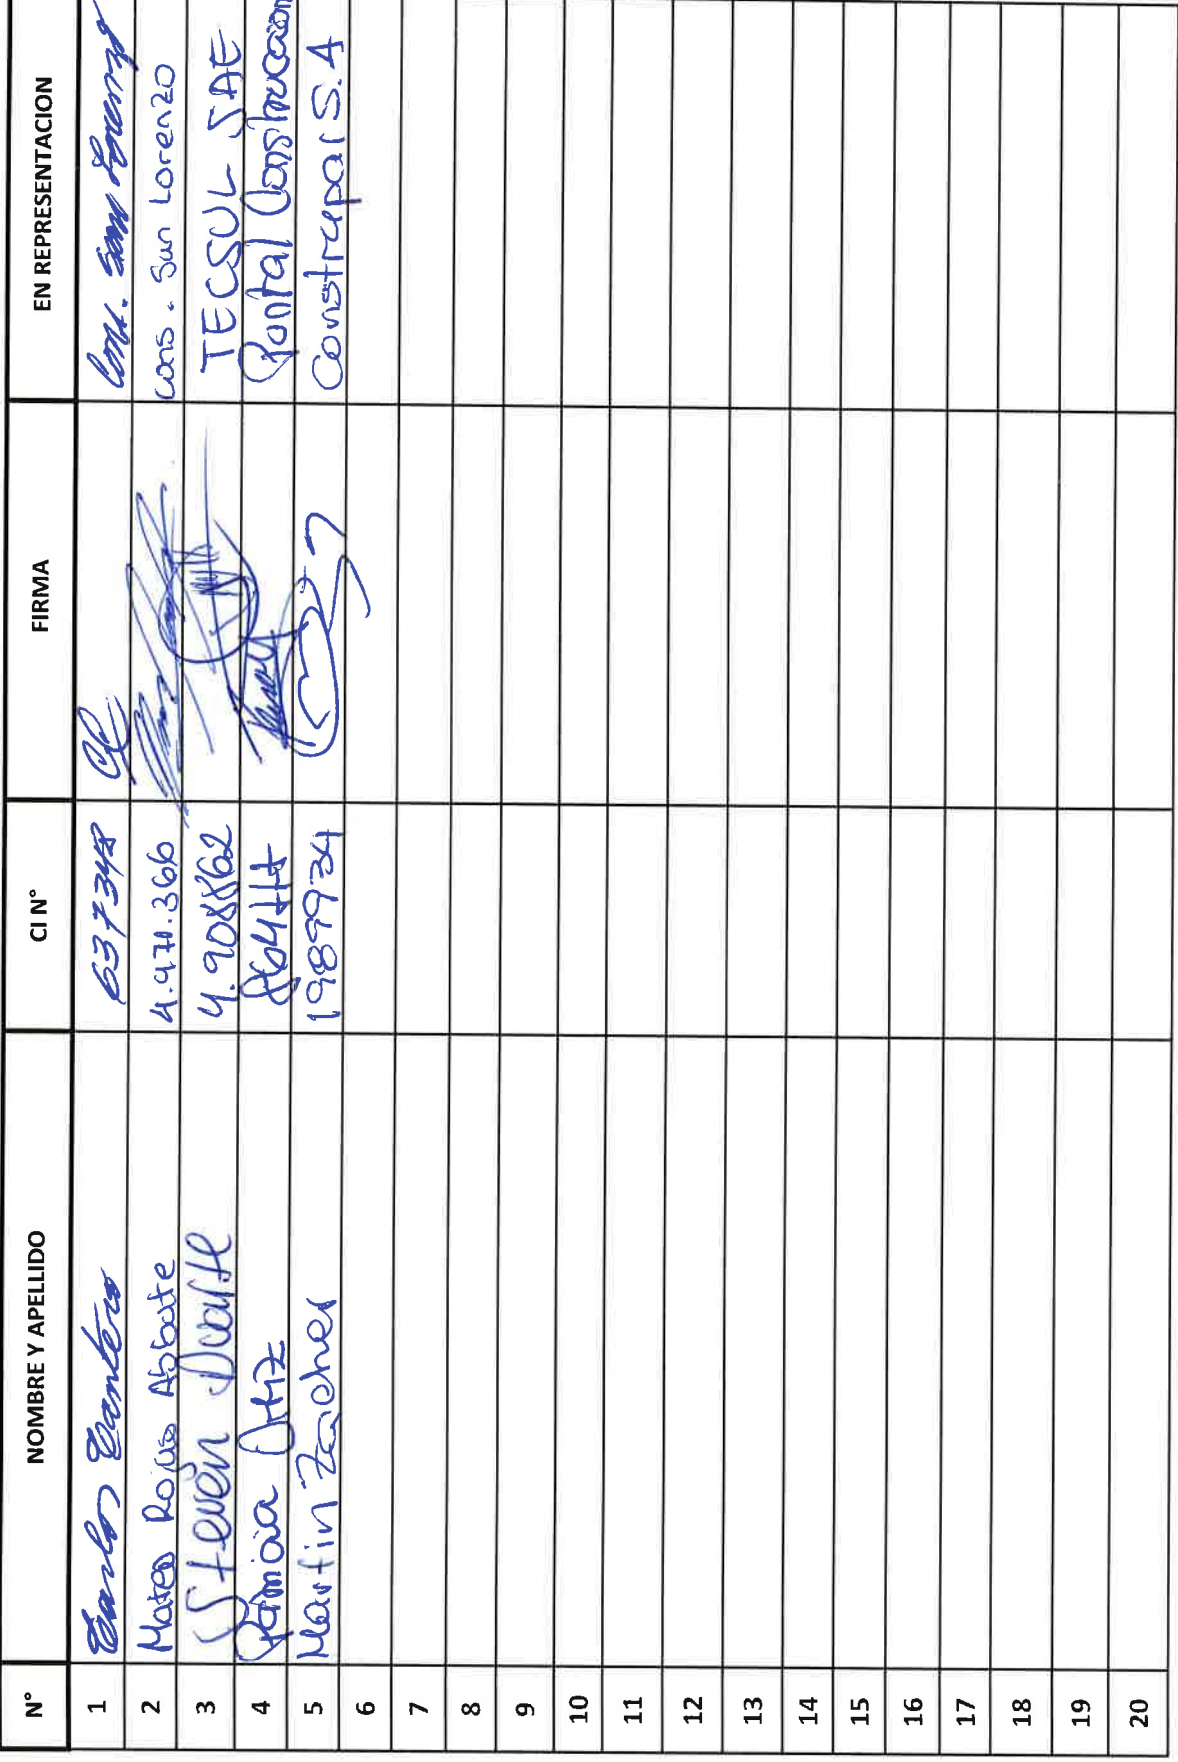 N° NOMBRE Y APELLIDO CI N° FIRMA EN REPRESENTACION
1 Carlos Cantero 637348 Cons. San Lorenzo
2 Mateo Rojas Abbate 4.971.366 Cons. San Lorenzo
3 Steven Duarte 4.908862 TECSUL SAE
4 Patricia Ortiz Portal Construccion
5 Martin Zarcher 1989934 Construpar S.A
6
7
8
9
10
11
12
13
14
15
16
17
18
19
20